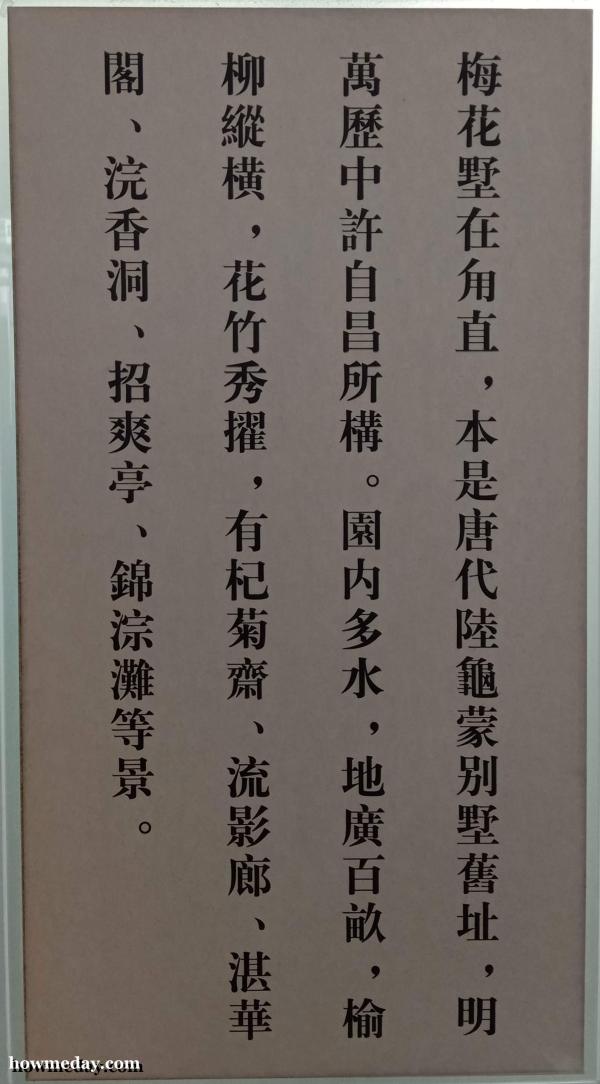 梅花墅在甪直，本是唐代陸龜蒙别墅舊址，明
萬歷中許自昌所構。園内多水，地廣百畝，榆
柳縱横，花竹秀擢，有杞菊齋、流影廊、湛華
閣、浣香洞、招爽亭、錦淙灘等景。
howmeday.com